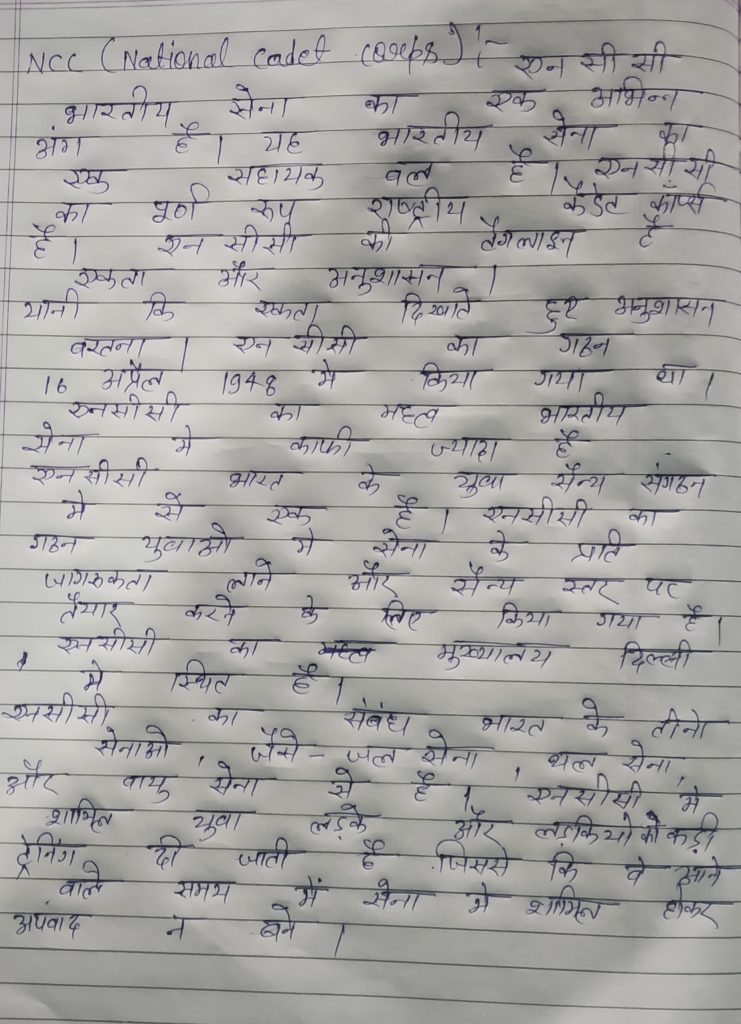 NCC (National Cadet Coreps) :- एन सी सी
भारतीय सेना का एक अभिन्न
अंग है। यह भारतीय सेना का
एक सहायक बल है। एन सी सी
का पूर्ण रूप राष्ट्रीय कैडेट कॉर्प्स
है। एन सीसी की टैगलाइन है
एकता और अनुशासन।
यानी कि एकता दिखाते हुए अनुशासन
बरतना। एन सीसी का गठन
16 अप्रैल 1948 मे किया गया था।
एनसीसी का महत्व भारतीय
सेना मे काफी ज्यादा है
एनसीसी भारत के युवा सैन्य संगठन
मे से एक है। एनसीसी का
गठन युवाओ मे सेना के प्रति
जागरुकता लाने और सैन्य स्तर पर
तैयार करने के लिए किया गया है।
एनसीसी का मुख्यालय दिल्ली
मे स्थित है।
एनसीसी का संबंध भारत के तीनो
सेनाओ, जैसे - जल सेना, थल सेना,
और वायु सेना से है। एनसीसी मे
शामिल युवा लड़के और लड़कियो को कड़ी
ट्रेनिंग दी जाती है जिससे कि वे आने
वाले समय में सेना मे शामिल होकर
अपवाद न बने।